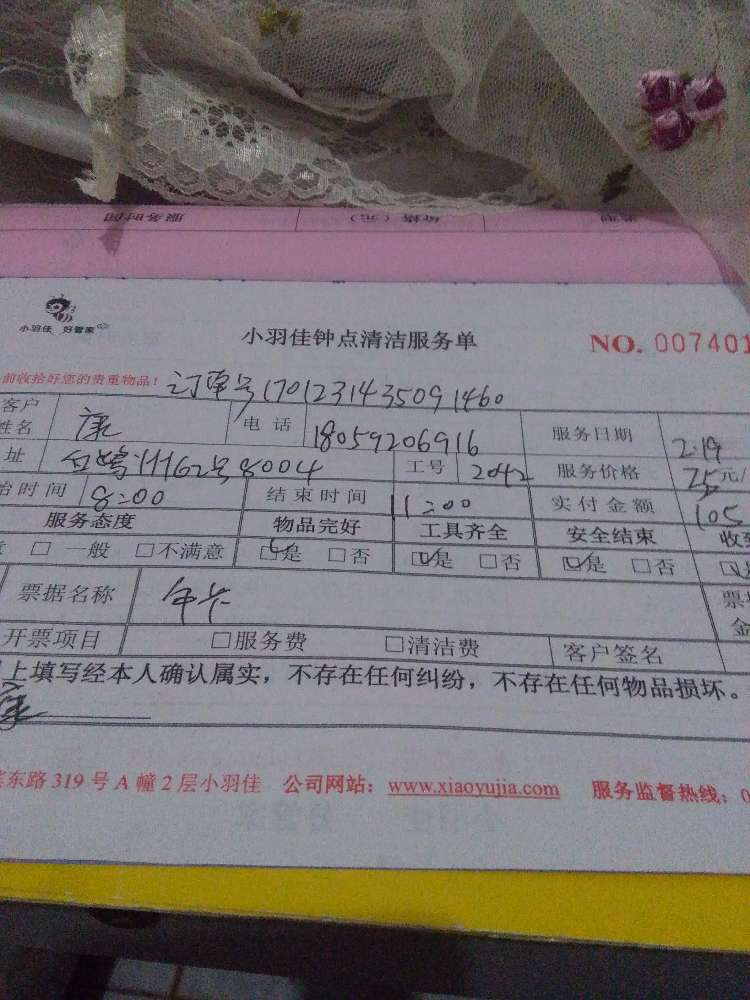 服务时间 价格（元）
小羽佳 好管家
小羽佳钟点清洁服务单 NO. 007401
前收拾好您的贵重物品！ 订单号170123143509 1460
客户姓名 康 电话 18059206916 服务日期 2.19
址 162号8004 工号 2042 服务价格 25元/
始时间 8:00 结束时间 11:00 实付金额 105
服务态度 物品完好 工具齐全 安全结束 收
□一般 □不满意 □是 □否 □是 □否 □是 □否
票据名称 年卡 票
金
开票项目 □服务费 □清洁费 客户签名
上填写经本人确认属实，不存在任何纠纷，不存在任何物品损坏。
康
东路 319 号 A 幢 2 层小羽佳 公司网站：www.xiaoyujia.com 服务监督热线：0